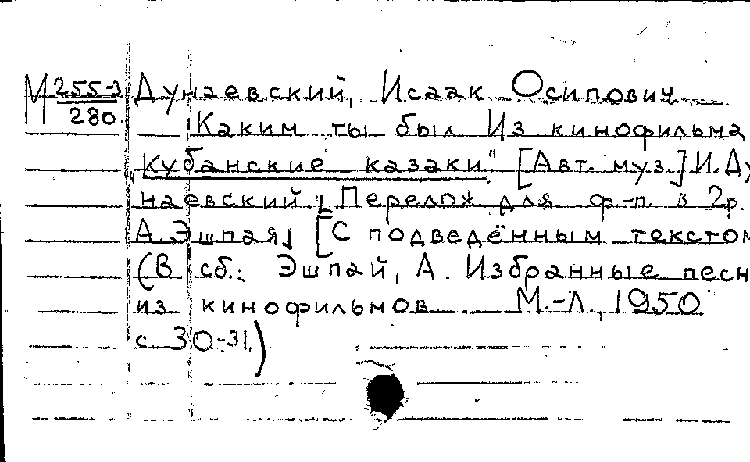 М 255-3 Дунаевский, Исаак Осипович
280. Каким ты был Из кинофильма
"Кубанские казаки" [Авт. муз.] И. Ду
наевский [Перелож для ф-п. в 2р.
А. Эшпая] [С подведённым текстом
(В сб.: Эшпай, А. Избранные песн
из кинофильмов М.-Л., 1950
с 30-31.)